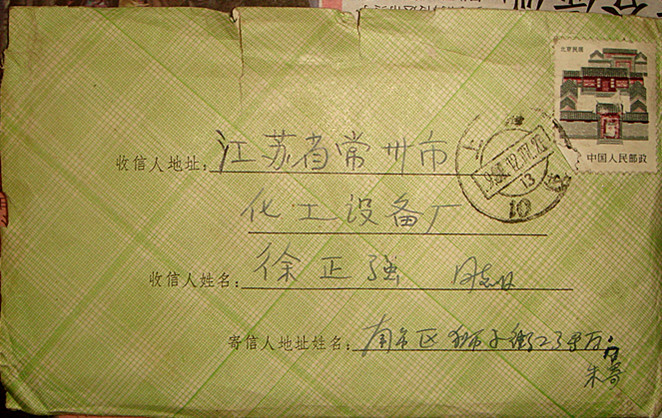 北京民居
中国人民邮政
上海
13
10
收信人地址: 江苏省常州市
化工设备厂
收信人姓名: 徐正强 同志收
寄信人地址姓名: 南市区狮子街
朱寄